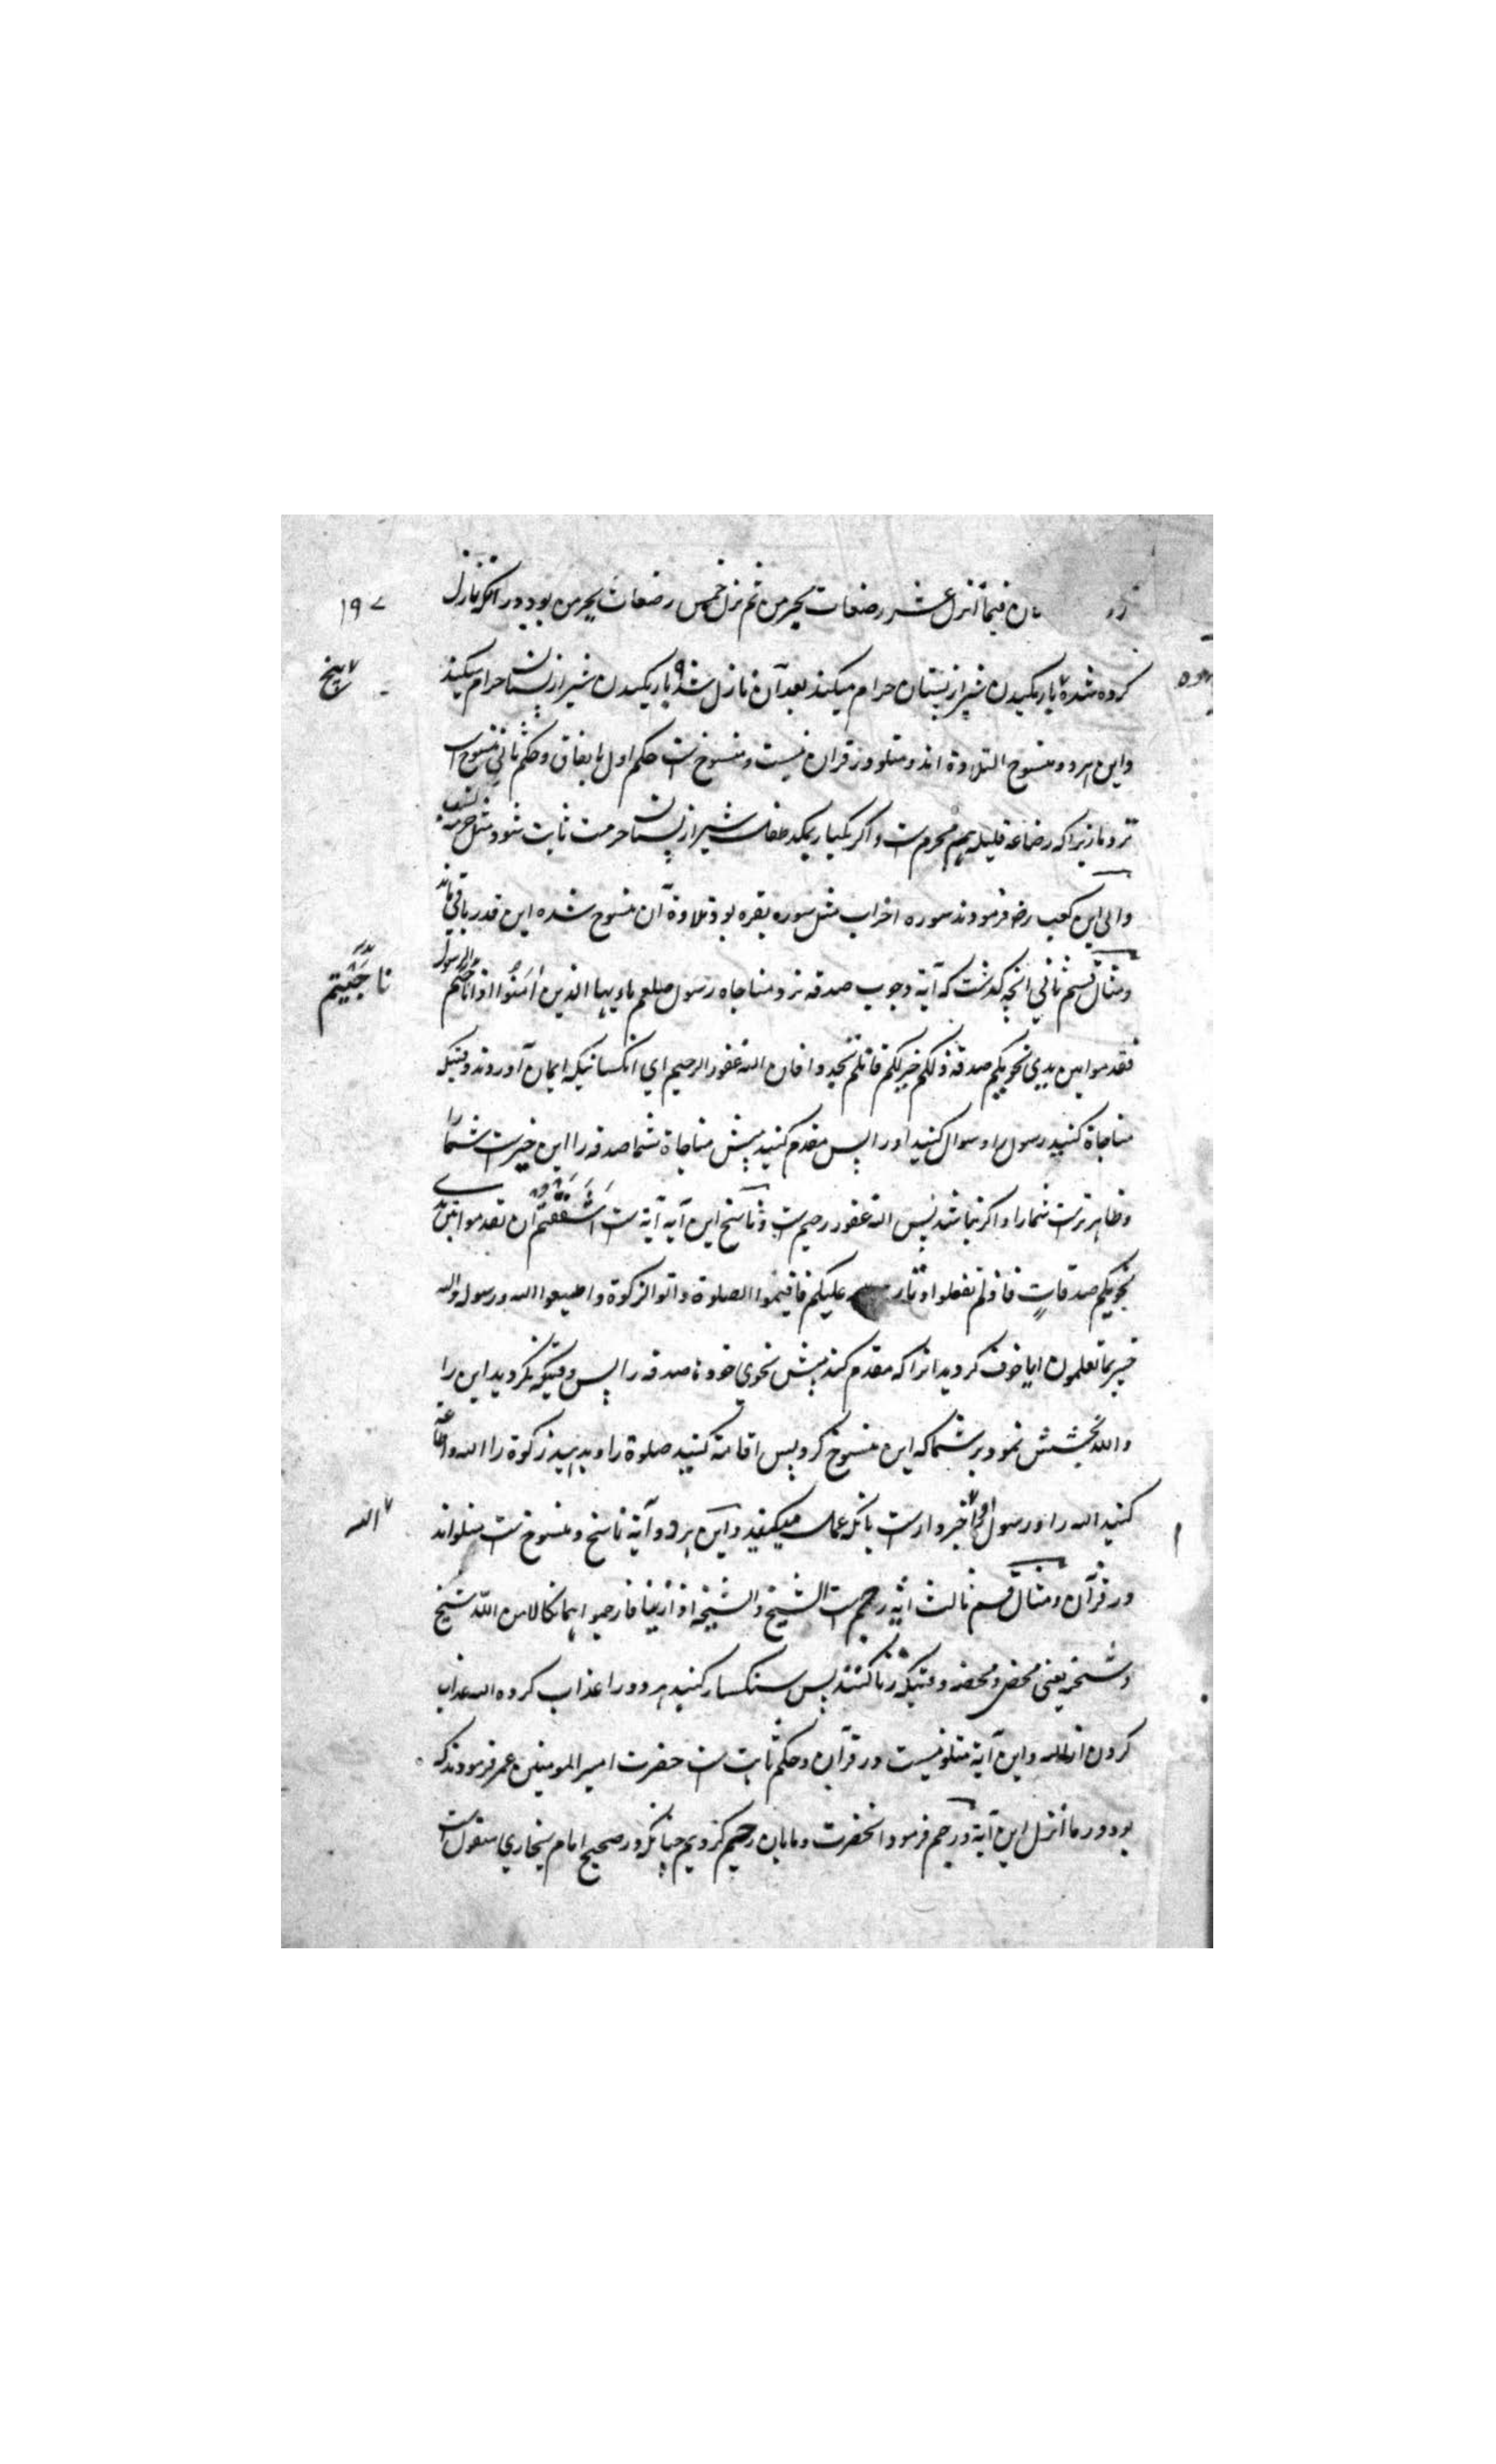 کان فیما انزل عشر رضعات یحرمن ثم نزل خمس رضعات یحرمن بود در آنکه نازل
۱۹۷
کرده شده یا ریکیدن شیر از پستان حرام میکند بعد آن نازل شد یا ریکیدن شیر از پستان حرام میکند
پنج
و این هر دو منسوخ التلاوة اند و متلو در قران نیست و منسوخ ست حکم اول باتفاق و حکم ثانی منسوخ است
نزد ما زیرا که رضاعة قلیله هم محرم ست و اگر یکبار بمکد طفل شیر از پستان حرمت ثابت شود مثل حرمة نسب
و ابی ابن کعب رض فرمودند سوره احزاب مثل سوره بقره بود تلاوة آن منسوخ شده این قدر باقی ماند
و مثال قسم ثانی انچه گذشت که آیة وجوب صدقه نزد مناجاه رسول صلعم یاءیها الذین اٰمَنُوا اذا ناجیتم الرسول
ناجَیْتم
فقدموا بین یدی نجویکم صدقة ذلکم خیر لکم فان لم تجدوا فان الله غفور الرحیم ای انکسانیکه ایمان آوردند وقتیکه
مناجاة کنید رسول را و سوال کنید اورا پس مقدم کنید پیش مناجاة شما صدقه را این خیرست شما را
و ظاهر ترست شما را و اگر نیابید پس الله غفور رحیم ست و ناسخ این آیه آیة ست اَشْفَقْتُم ان تقدموا بین یدی
نجویکم صدقاتٍ فاذ لم تفعلوا و تاب علیکم فاقیموا الصلوة و اتوا الزکوة و اطیعوا الله و رسوله والله
خبیر بما تعملون ایا خوف کردید انرا که مقدم کنند پیش نجوی خود ها صدقه را پس وقتیکه نکردید این را
و الله بخشش نمود بر شما که این منسوخ کرد پس اقامة کنید صلوة را و بدهید زکوة را الله و اطاعة
کنید الله را و رسول او را خبردارست بانکه عمل میکنید و این هر دو آیة ناسخ و منسوخ ست متلو اند
الله
در قرآن و مثال قسم ثالث آیة رجم ست الشیخ و الشیخة اذا زنیا فارجموا هما نکالا من اللّه شیخ
و شیخه یعنی محصن و محصنه وقتیکه زنا کنند پس سنکسار کنید هر دو را عذاب کرده الله عذاب
کردن از الله و این آیة متلو نیست در قرآن و حکم ثابت ست حضرت امیر المومنین عمر فرمودند که
بود در ما انزل این آیة و رجم فرمود انحضرت و مایان رجم کردیم چنانکه در صحیح امام بخاری منقول است